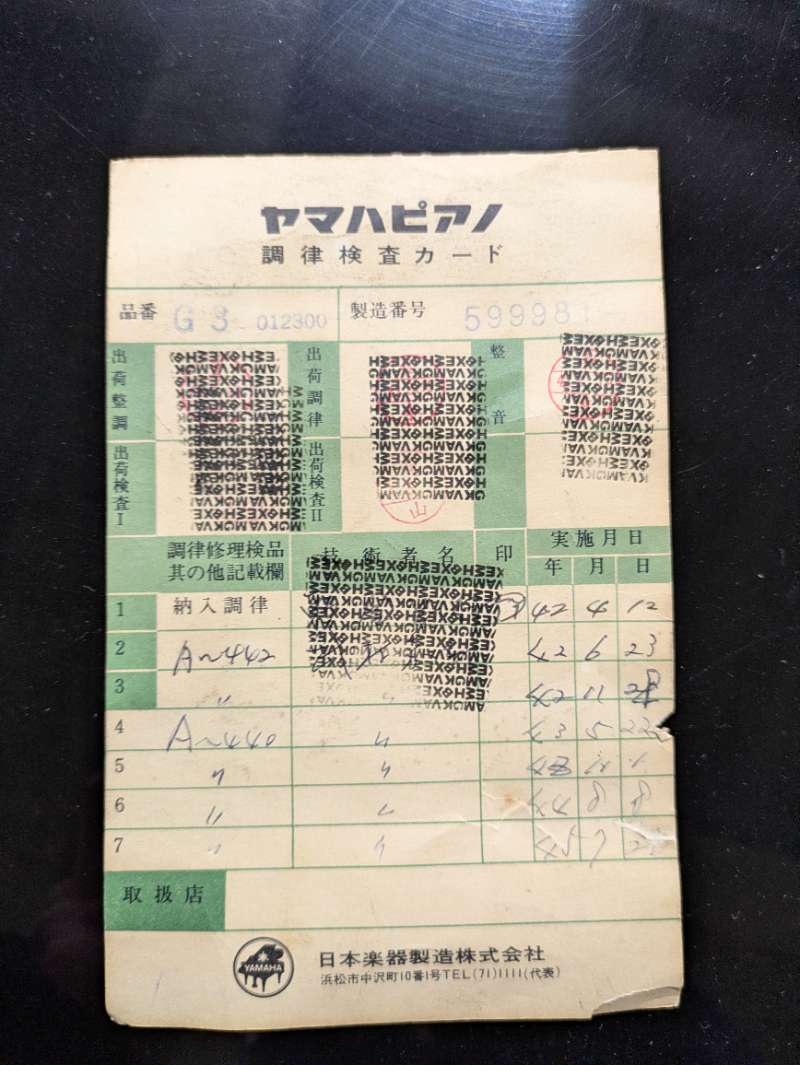 ヤマハピアノ
調律検査カード
品番 G3 012300 製造番号 599981
出荷整調 出荷調律 整音
出荷検査I 出荷検査II 山
調律修理検品 技術者名 印 実施月日
其の他記載欄 年 月 日
1 納入調律 42 4 12
2 A~442 42 6 23
3 〃 〃 42 11
4 A~440 〃 43 5 22
5 〃 〃
6 〃 〃 44 8 8
7 〃 〃 45 7
取扱店
YAMAHA 日本楽器製造株式会社
浜松市中沢町10番1号TEL(71)1111(代表)